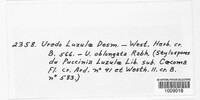 2358. Uredo Luzulæ Desm. — West. Herb. cr.
B. 566. — U. oblongata Rabh. (Stylospores
du Puccinia Luzulæ Lib. sub Cæoma
Fl. cr. Ard. n° 41 et Westh. ll. cr. B.
n° 583.)
1009018